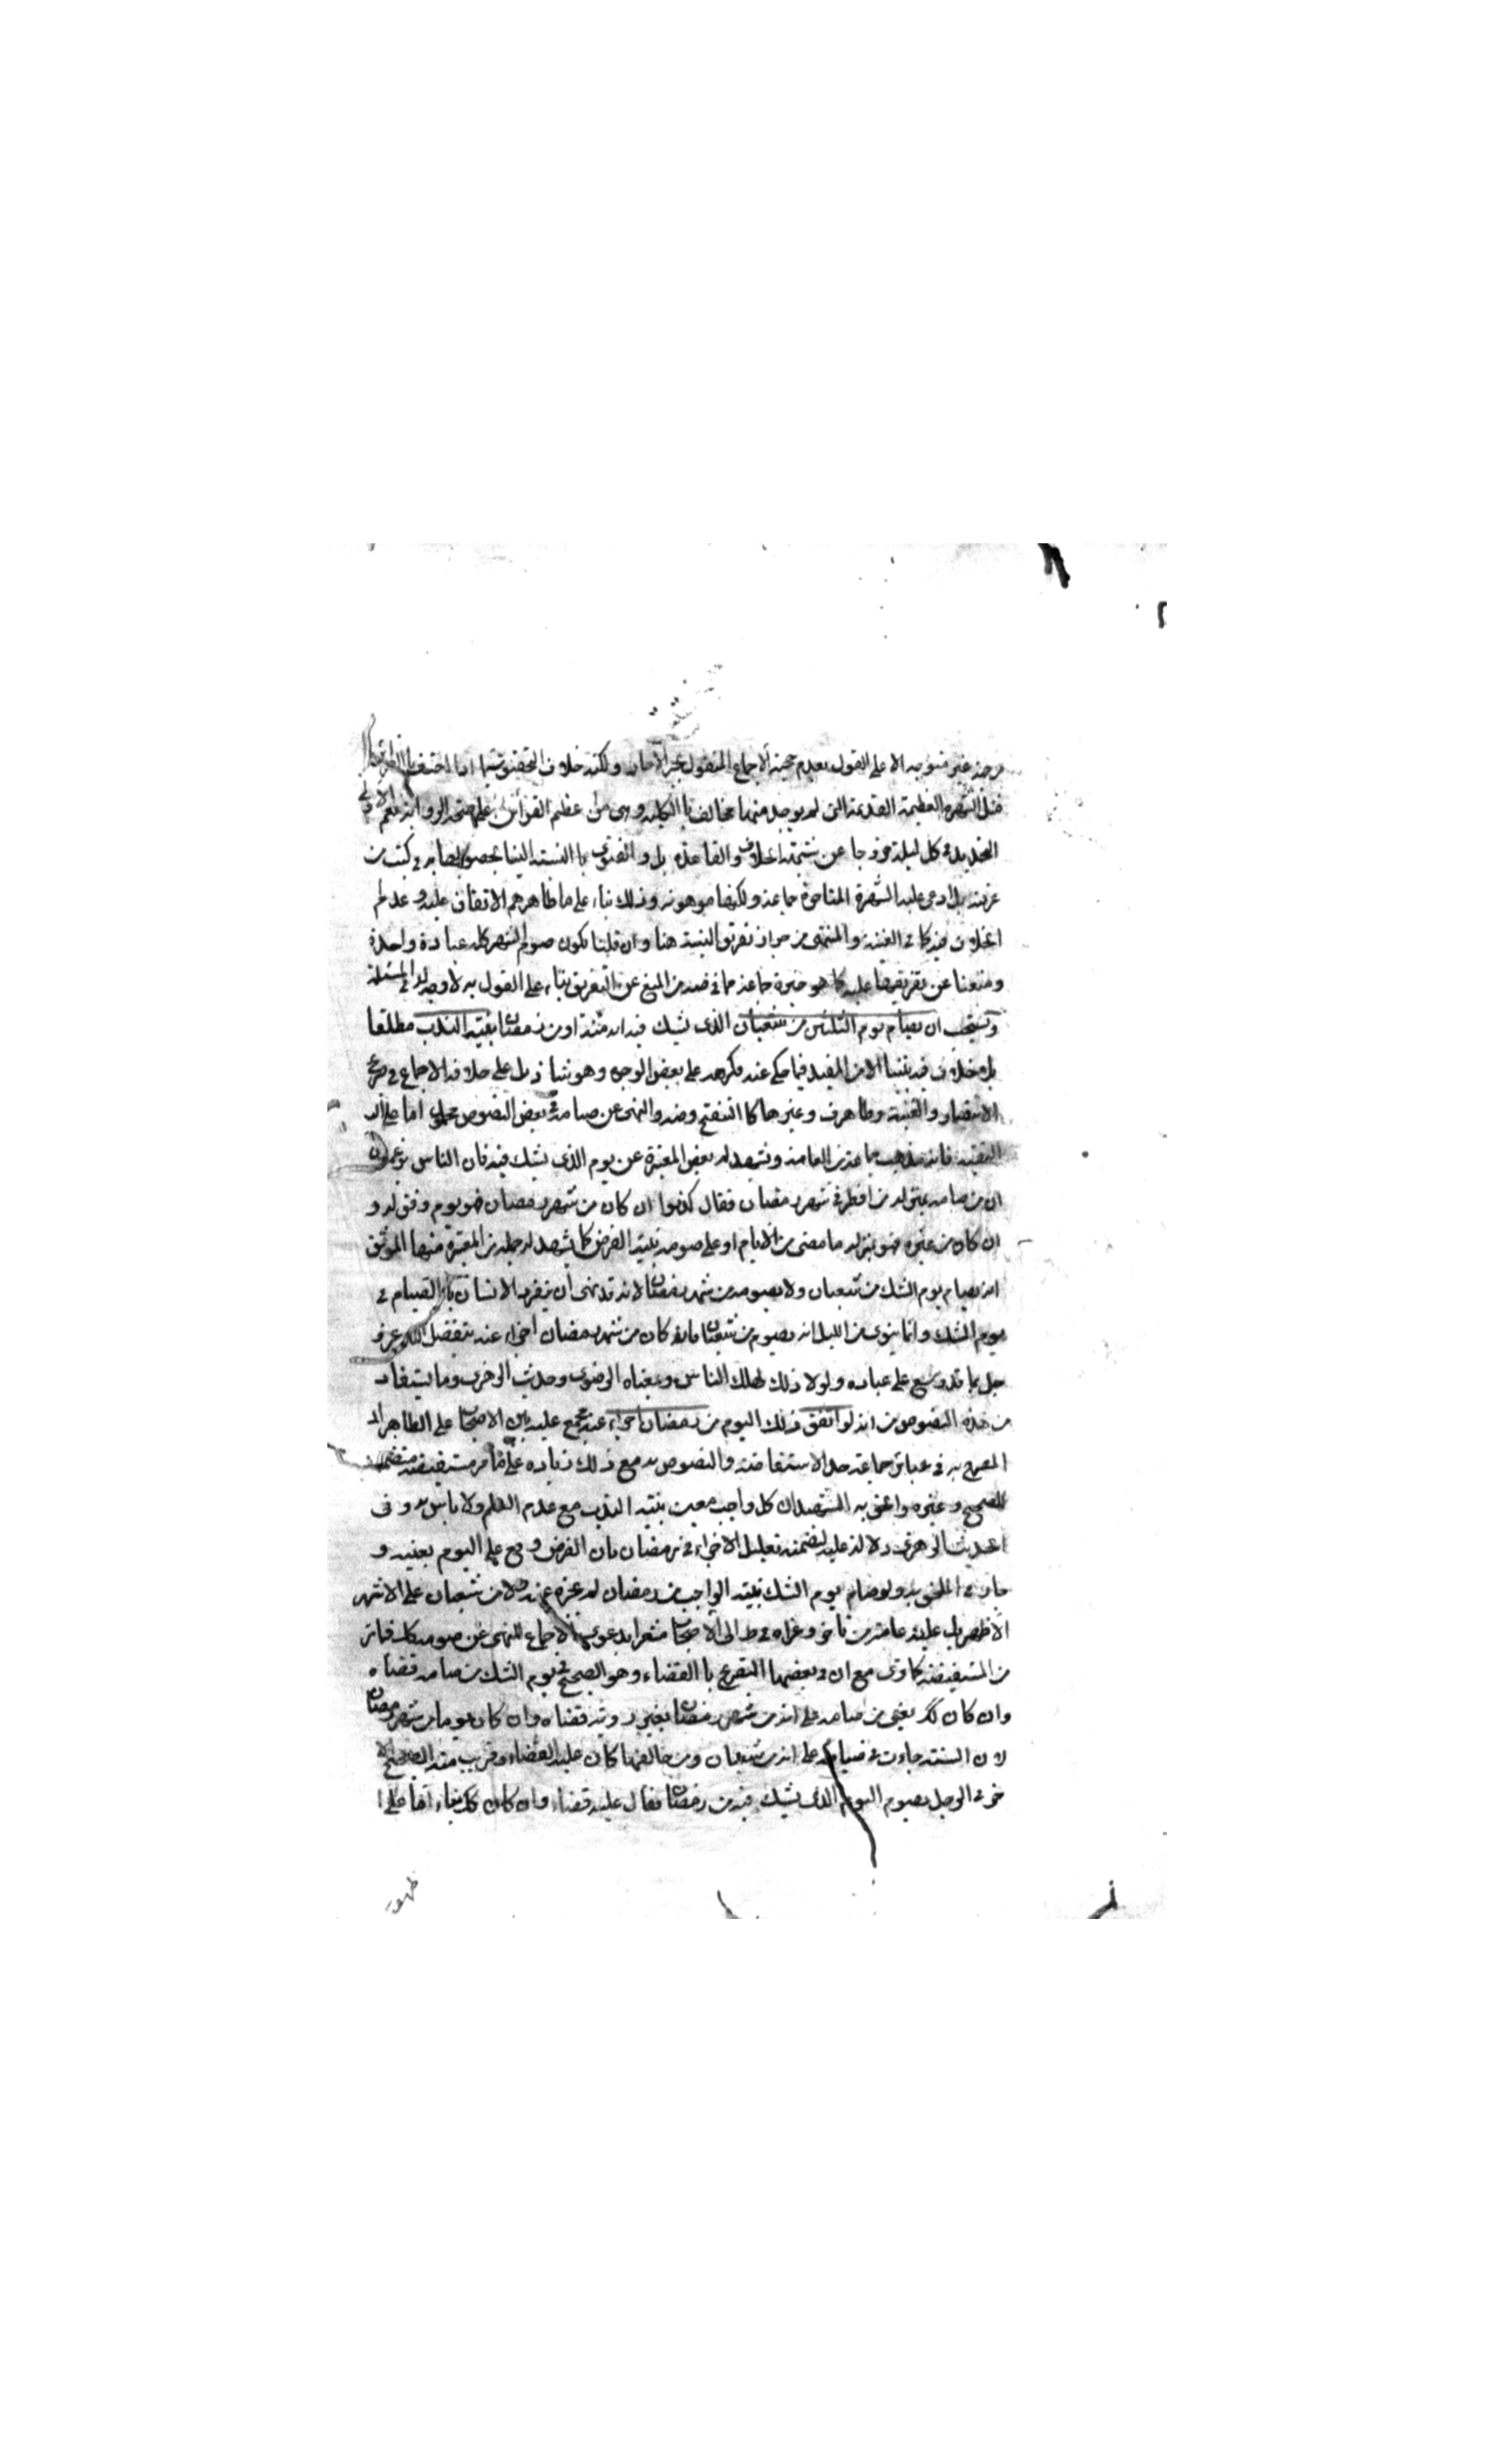 غير متوجه الا على القول بعدم حجية الاجماع المنقول بخبر الآحاد ولكنه خلاف التحقيق سيما اذا احتف بالقرائن
الشهرة العظيمة القديمة التى لم يوجد منها مخالف بالكلية وهى من عظيم القرائن على صحة الرواية نعم الاولى
التجديد فى كل ليلة خروجا عن شبهة الخلاف والقاعدة بل والفتوى
بل ادعى عليه الشهرة المتاخرة جماعة ولكنها موهونة وذلك بناء على ما ظاهرهم الاتفاق عليه وعدم
الخلاف فيه كما فى الغنية والمنتهى من جواز تفريق النية هنا وان قلنا بكون صوم الشهر كله عبادة واحدة
ومنعنا عن تفريقها عليه كما هو خيرة جماعة المنع عن التفريق بناء على القول به لا وجه له المسئلة
ويستحب ان يصام يوم الثلثين من شعبان الذى يشك فيه انه منه او من رمضان بنية الندب مطلقا
بلا خلاف فيه بيننا الا من المفيد فيما حكى عنه فكرهه على بعض الوجوه وهو شاذ بل على خلافه الاجماع فى صريح
الانتصار والغنية وظاهر وغيرها كالتنقيح وضه والنهى عن صيامه فى بعض النصوص محمول اما على
التقية فانه مذهب جماعة من العامة ويشهد له بعض المعتبرة عن يوم الذى يشك فيه فان الناس يزعمون
ان من صامه بمنزلة من افطر فى شهر رمضان فقال كذبوا ان كان من شهر رمضان فهو يوم وفق له و
ان كان من غيره فهو بمنزلة ما مضى من الايام او على صومه بنية الفرض كما يشهد له جملة من المعتبرة منها الموثق
انه يصام يوم الشك من شعبان ولا يصومه من شهر رمضان لانه قد نهى ان ينفرد الانسان بالصيام فى
يوم الشك وانما ينوى من الليل انه يصوم من شعبان فان كان من شهر رمضان اجزاء عنه بتفضل الله عز و
جل بما قد وسع على عباده ولولا ذلك لهلك الناس وبمعناه الرضوى وحديث الزهرى وما يستفاد
من هذه النصوص من انه لو اتفق ذلك اليوم من رمضان اجزاء عنه مجمع عليه بين الاصحاب على الظاهر
المصرح به فى عبائر جماعة حد الاستفاضة والنصوص به مع ذلك زيادة على ما مر مستفيضة
الصحيح وغيره والحق به الشهيدان كل واجب معين بنية الندب مع عدم العلم ولا باس به وفى
الحديث الزهرى دلالة عليه لتضمنه تعليل الاجزاء فى رمضان بان الفرض وقع على اليوم بعينه و
جار فى الملحق به ولو صام يوم الشك بنية الواجب من رمضان لم يجزه عنه ولا من شعبان على الاشهر
الاظهر بل عليه عامة من تاخر وعزاه فى ط الى الاصحاب مشعرا بدعوى الاجماع للنهى عن صومه كذلك
من المستفيضة كما ترى مع ان فى بعضها التصريح بالقضاء وهو الصحيح فى يوم الشك من صامه قضاه
وان كان كك يعنى من صامه على انه من شهر رمضان بغير روية قضاه وان كان يوما من شهر رمضان
لان السنة جاءت فى صيامه على انه من شعبان ومن خالفها كان عليه القضاء وقريب منه الصحيح
فى الرجل يصوم اليوم الذى يشك فيه من رمضان فقال عليه قضاء وان كان كك بناء